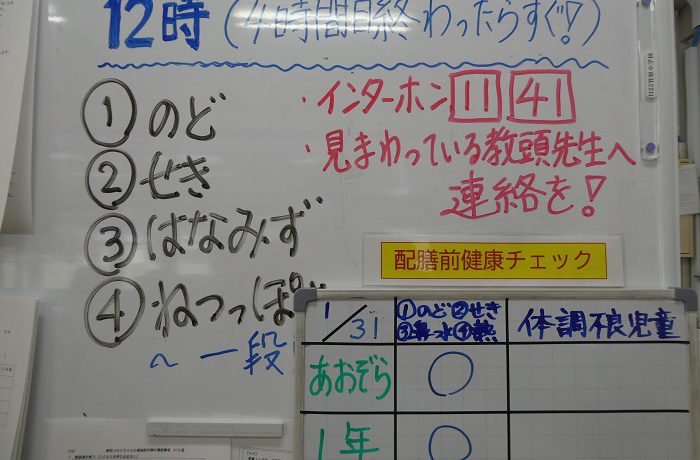 12時(4時間目終わったらすぐ!)
①のど
②せき
③はなみず
④ねつっぽ
~一段
・インターホン 11 41
・見まわっている教頭先生へ
連絡を!
配膳前健康チェック
1/31
①のど②せき
③鼻水④熱
体調不良児童
あおぞら ○
1年 ○